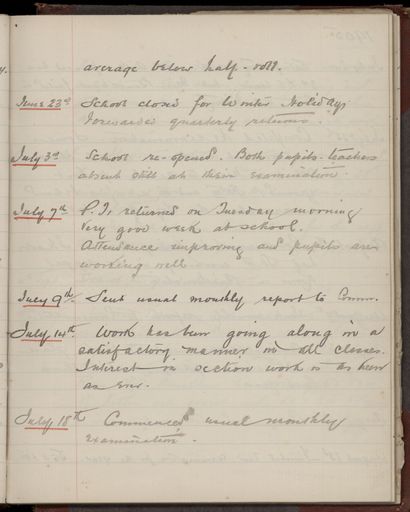 average below half-roll.
June 23rd School closed for Winter Holidays
Forwarded quarterly returns.
July 3rd School re-opened. Both pupil-teachers
absent still at their examination.
July 7th P.Ts returned on Tuesday morning
Very good week at school.
Attendance improving and pupils are
working well
July 9th Sent usual monthly report to Comm.
July 14th Work has been going along in a
satisfactory manner in all classes.
Interest in section work is as keen
as ever.
July 18th Commenced usual monthly
examination.